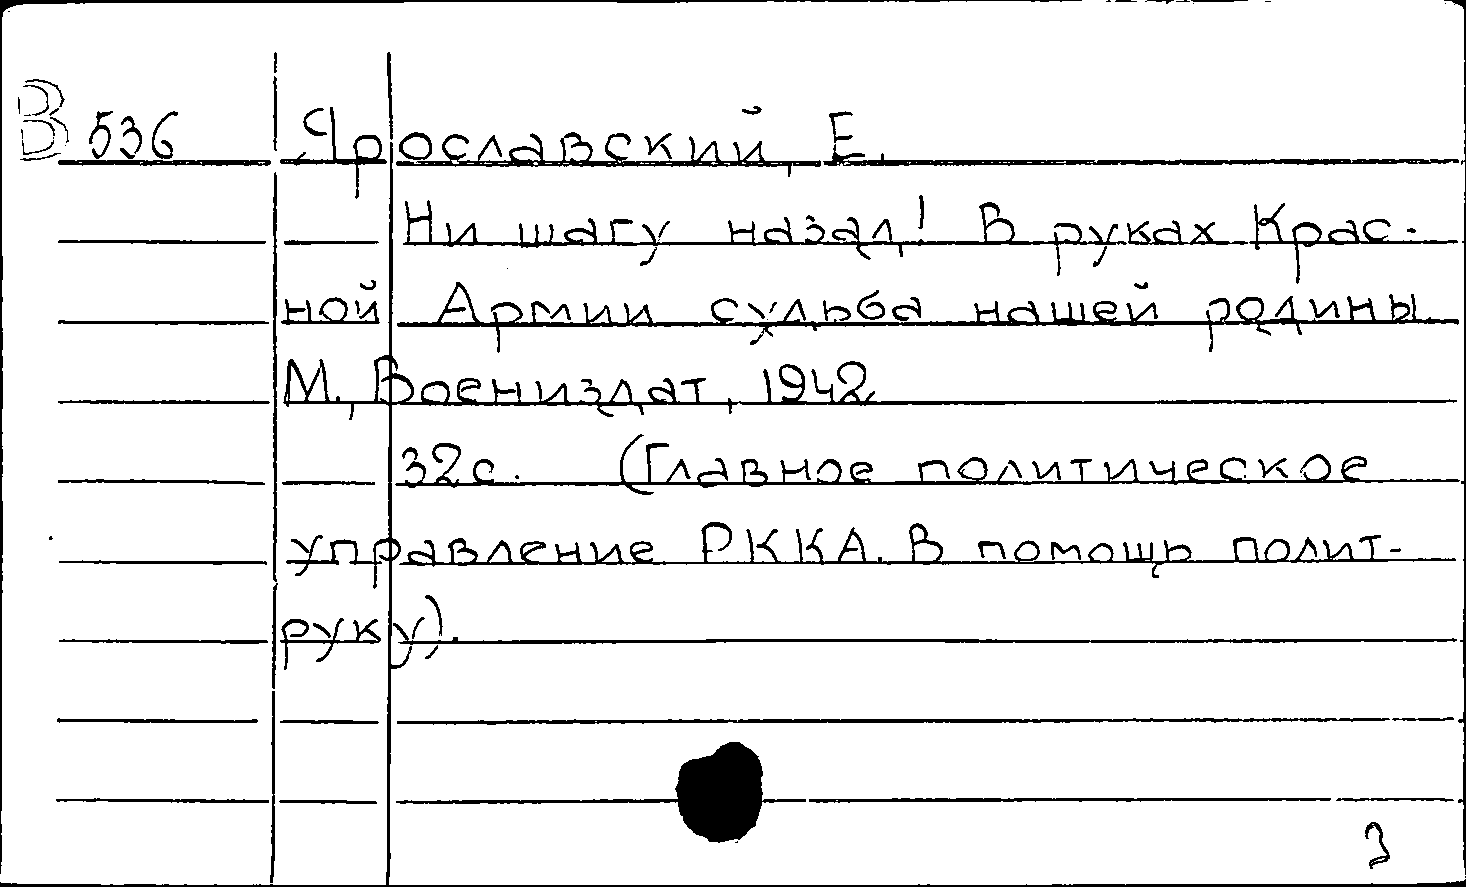 В 536 Ярославский, Е.
Ни шагу назад! В руках Крас-
ной Армии судьба нашей родины
М., Воениздат, 1942
32с. (Главное политическое
управление РККА. В помощь полит-
руку).
3